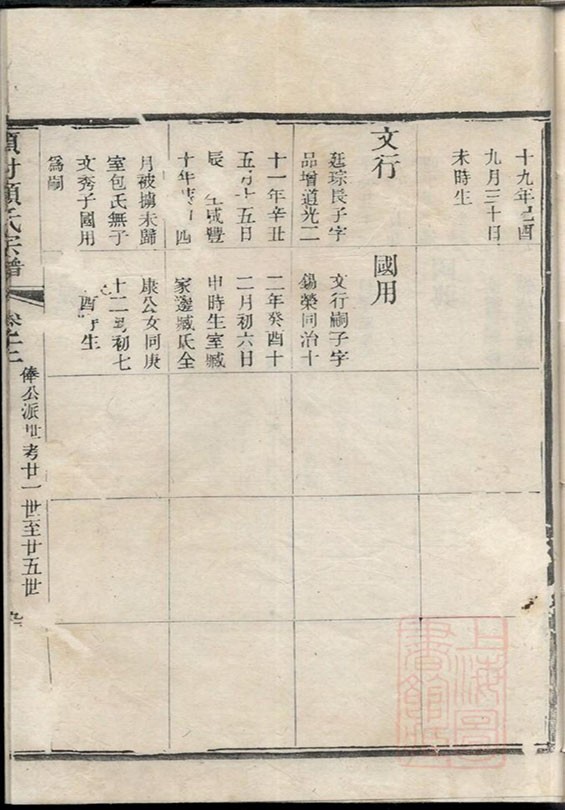 十九年己酉
九月三十日
未時生
文行
廷琮長子字
品增道光二
十一年辛丑
五月十五日
辰 生咸豐
十年 四
月被擄未歸
室包氏無子
文秀子國用
為嗣
國用
文行嗣子字
錫榮同治十
二年癸酉十
二月初六日
申時生室臧
家邊臧氏全
康公女同庚
十二月初七
酉時生
顧氏宗譜
卷之二
俸公派世考廿一世至廿五世
上海圖書館藏